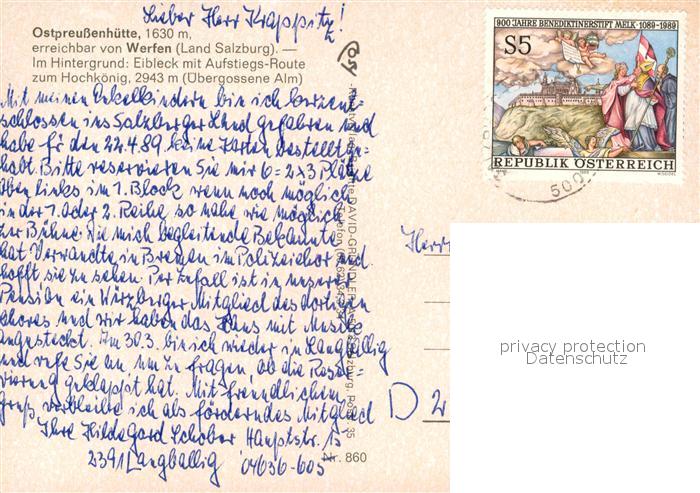 Lieber Herr Krappitz!
Ostpreußenhütte, 1630 m,
erreichbar von Werfen (Land Salzburg). —
Im Hintergrund: Eibleck mit Aufstiegs-Route
zum Hochkönig, 2943 m (Übergossene Alm)
Mit meinen Enkelkindern bin ich kurzent=
schlossen ins Salzberger Land gefahren und
habe für den 22.4.89 keine Karten bestellt ge=
habt. Bitte reservieren Sie mir 6 = 2x3 Plätze
oben links im 1. Block wenn noch möglich
in der 1. oder 2. Reihe so nahe wie möglich
zur Bühne. Die mich begleitende Bekannte
hat Verwandte in Bremen im Polizeichor und
hofft sie zu sehen. Per Zufall ist in unserer
Pension ein Würzberger Mitglied des dortigen
Chores und wir haben das Haus mit Musik
angesteckt. Am 30.3. bin ich wieder in Langballig
und rufe Sie an um zu fragen ob die Reser=
vierung geklappt hat. Mit freundlichem
Gruß verbleibe ich als förderndes Mitglied
Ihre Hildegard Schober Hauptstr. 15
2391 Langballig 04636-605
Nr. 860
900 JAHRE BENEDIKTINERSTIFT MELK · 1089-1989
S5
REPUBLIK ÖSTERREICH
500
Herrn
D 2
privacy protection
Datenschutz